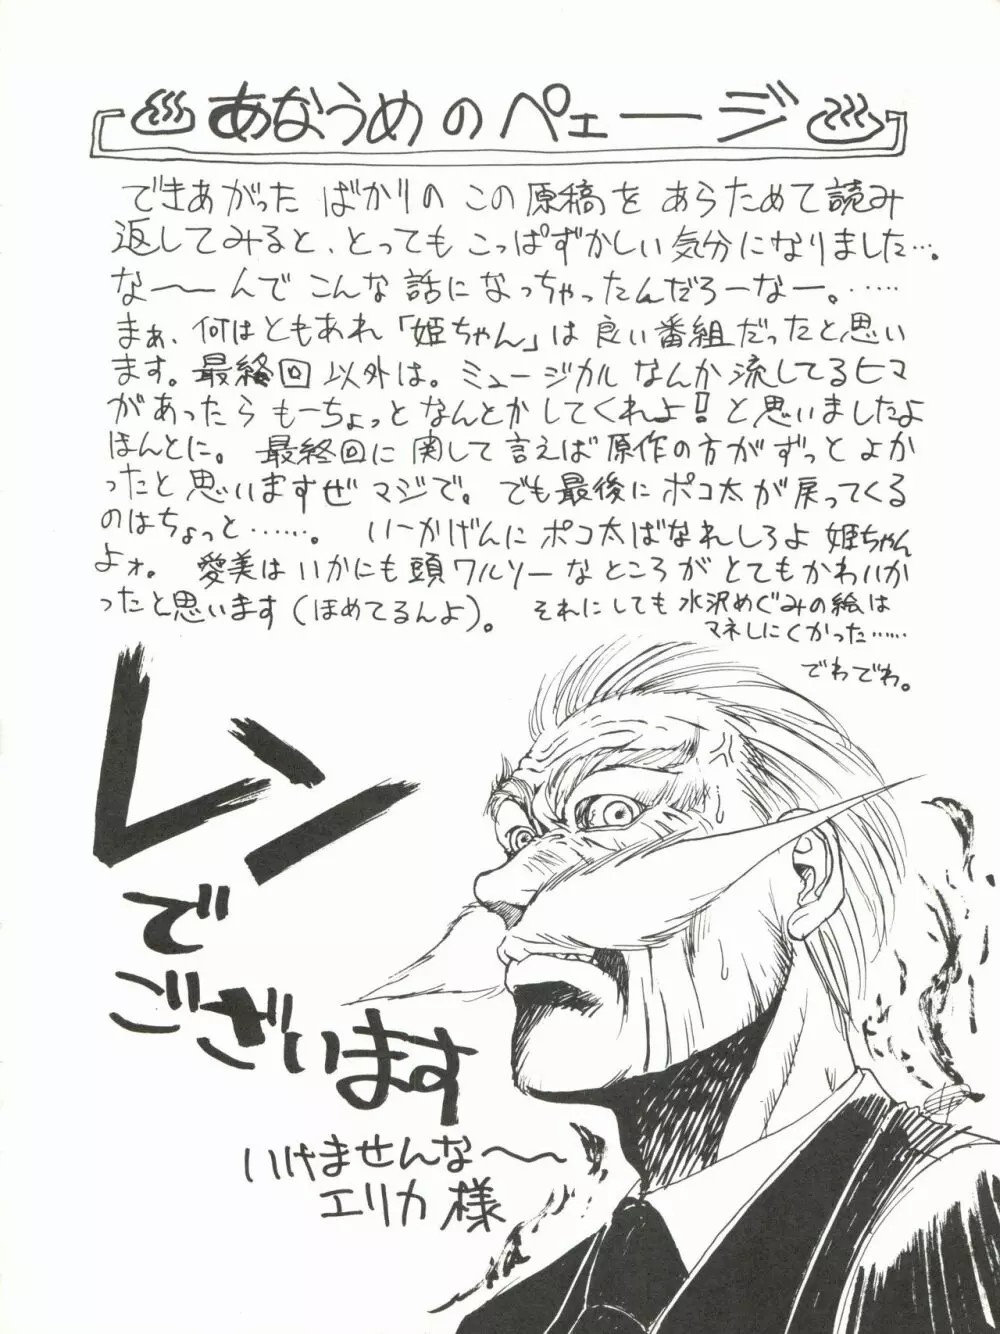 あなうめのページ
できあがったばかりのこの原稿をあらためて読み
返してみると、とってもこっぱずかしい気分になりました…。
な〜〜んでこんな話になっちゃったんだろーなー。……
まぁ、何はともあれ「姫ちゃん」は良い番組だったと思い
ます。最終回以外は。ミュージカルなんか流してるヒマ
があったらもーちょっとなんとかしてくれよ!と思いましたよ
ほんとに。最終回に関して言えば原作の方がずっとよか
ったと思いますぜマジで。でも最後にポコ太が戻ってくる
のはちょっと……。いーかげんにポコ太ばなれしろよ姫ちゃん
よォ。愛美はいかにも頭ワルソーなところがとてもかわいか
ったと思います(ほめてるんよ)。それにしても水沢めぐみの絵は
マネしにくかった……
でわでわ。
レン
で
ございます
いけませんな〜〜
エリカ様